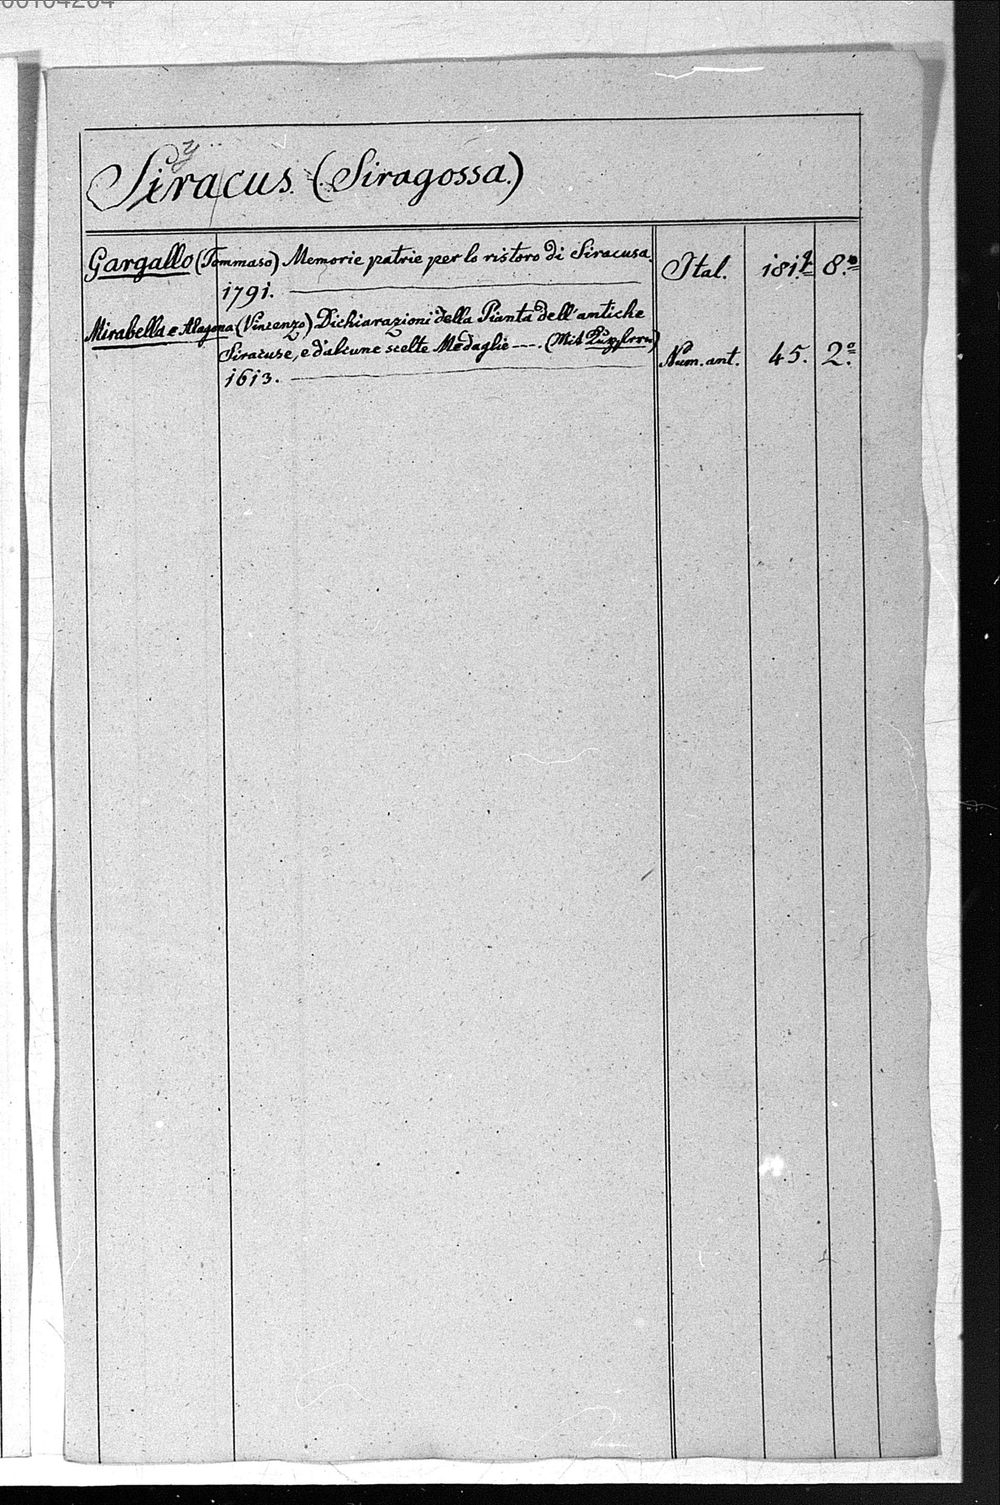 Siracus. (Siragossa.)
y
Gargallo (Tommaso) Memorie patrie per lo ristoro di Siracusa.
1791. Ital. 181 8.o
Mirabella e Alagona (Vincenzo) Dichiarazioni della Pianta dell'antiche
Siracuse, e d'alcune scelte Medaglie —. (Mit Kupfern)
1613. Num. ant. 45. 2.o